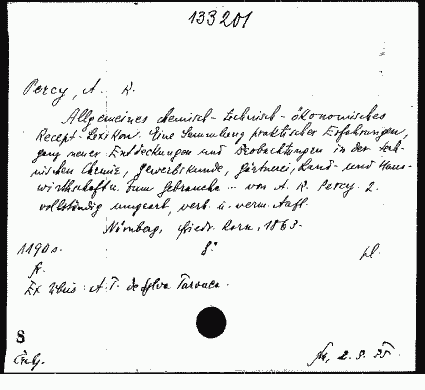 133201
Percy, A. R.
Allgemeines chemisch-technisch-ökonomisches
Recept-Lexikon. Eine Sammlung praktischer Erfahrungen,
ganz neuer Entdeckungen und Beobachtungen in der tech-
nischen Chemie, Gewerbskunde, Gärtnerei, Land- und Haus-
wirthschaft u. Zum Gebrauche .. von A. R. Percy. 2.
vollständig umgearb., verb. u. verm. Aufl.
Nürnberg, Friedr. Korn, 1863.
1190 s. 8°
Ex libris: A. T. de Sylva Tarouca.
S